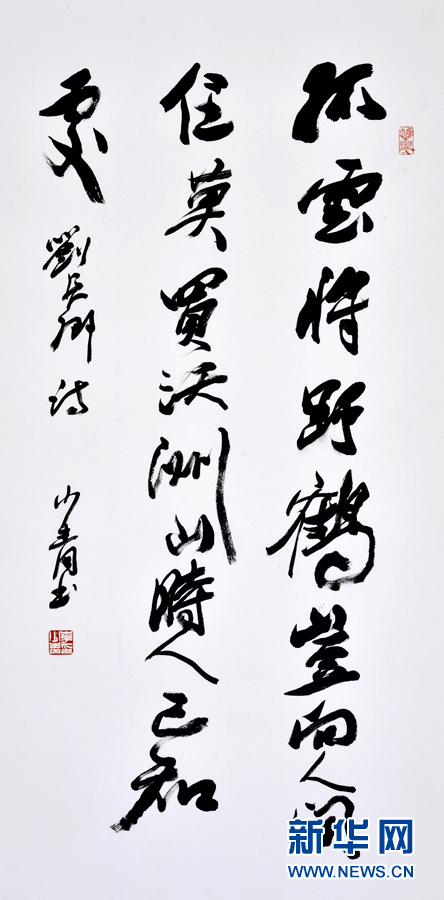 孤雲將野鶴豈向人間
住莫買沃洲山時人已知
處
劉長卿詩
少青书
新华网
WWW.NEWS.CN